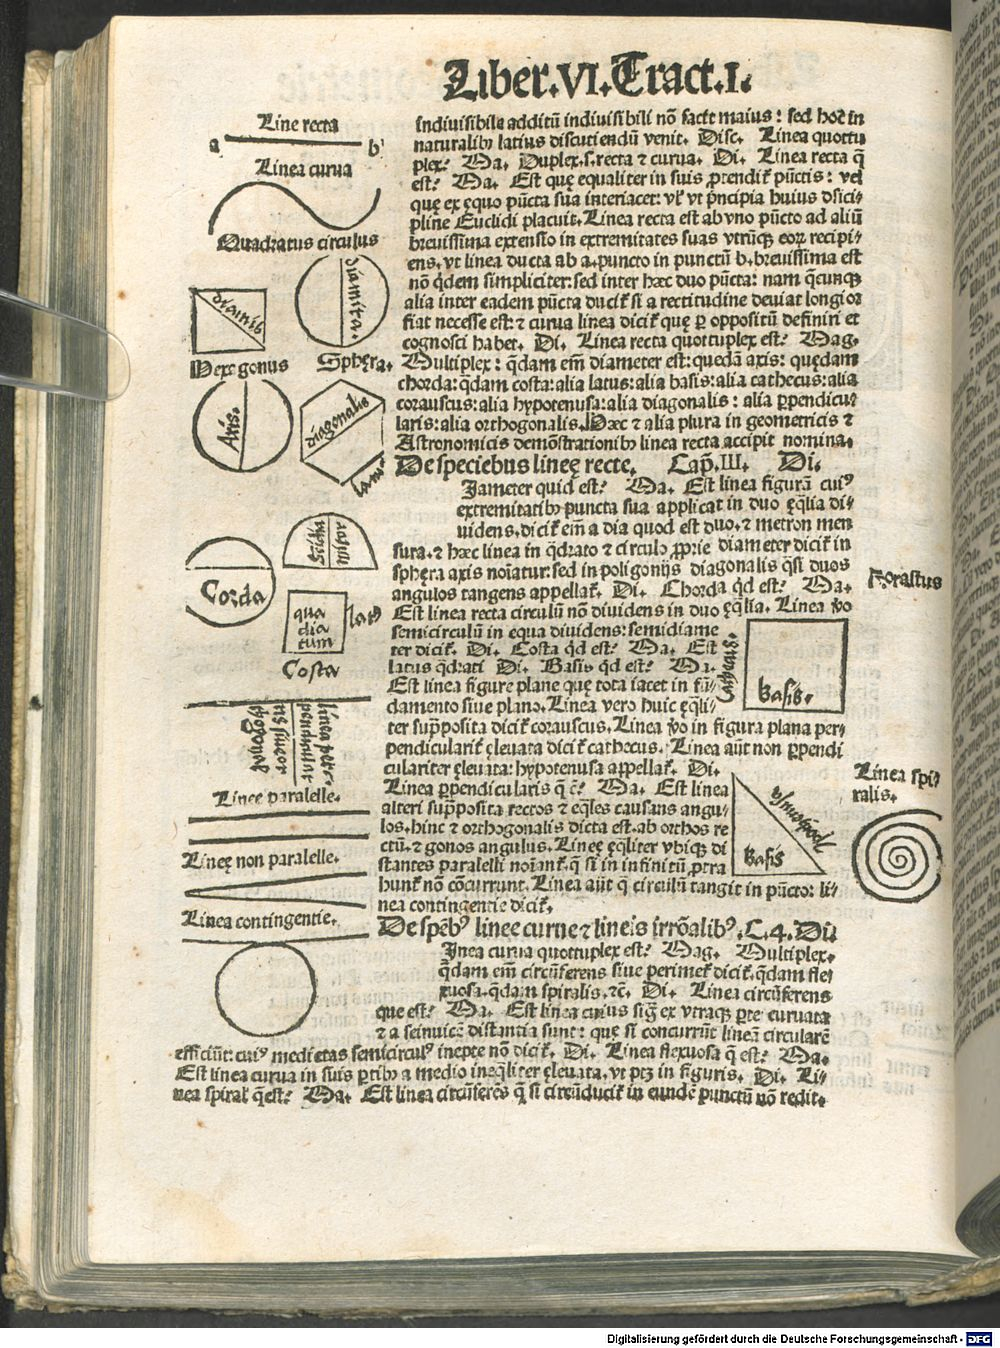 Liber.VI.Tract.I.
Line recta
a b
Linea curua
Quadratus circulus
diamit
diamitra.
Hexegonus Sphęra.
Axis.
diagonalis
latus
Corda
qua
dra
tum
latus
Costa
linea perpendicularis siue orthogonalis
Lineę paralelle.
Lineę non paralelle.
Linea contingentie.
indiuisibile additū indiuisibili nō facit maius: sed hoc in
naturalibꝰ latius discutiendū venit. Disc. Linea quottu
plex? Ma. Duplex.s.recta ⁊ curua. Di. Linea recta q̄
est? Ma. Est quę equaliter in suis ꝓtendit᷑ pūctis: vel
quę ex ęquo pūcta sua interiacet: vl᷑ vt prīcipia huius dīsci-
pline Euclidi placuit. Linea recta est ab vno pūcto ad aliū
breuissima extensio in extremitates suas vtrūqꝫ eoꝝ recipi-
ens. vt linea ducta ab a.puncto in punctū b.breuissima est
nō q̄dem simpliciter: sed inter hæc duo pūcta: nam q̄cunqꝫ
alia inter eadem pūcta ducit᷑ si a rectitudine deuiat longior
fiat necesse est: ⁊ curua linea dicit᷑ quę ꝑ oppositū definiri et
cognosci habet. Di. Linea recta quottuplex est? Mag.
Multiplex: q̄dam em̄ diameter est: quedā axis: quędam
chorda: q̄dam costa: alia latus: alia basis: alia cathecus: alia
corauscus: alia hypotenusa: alia diagonalis: alia ꝑpendicu
laris: alia orthogonalis. Hæc ⁊ alia plura in geometricis ⁊
Astronomicis demōstrationibꝰ linea recta accipit nomina.
De speciebus lineę recte. Cap̄.III. Di.
Iameter quid est? Ma. Est linea figurā cuiꝰ
extremitatibꝰ puncta sua applicat in duo ęq̄lia di-
uidens. dicit᷑ em̄ a dia quod est duo. ⁊ metron men
sura. ⁊ hæc linea in q̄drato ⁊ circulo ꝓprie diameter dicit᷑ in
sphęra axis noīatur: sed in poligonijs diagonalis q̄si duos
angulos tangens appellat᷑. Di. Chorda q̄d est? Ma.
Est linea recta circulū nō diuidens in duo ęq̄lia. Linea ꝟo
semicirculū in equa diuidens: semidiame
ter dicit᷑. Di. Costa q̄d est? Ma. Est
latus q̄drati Di. Basis q̄d est? Ma.
Est linea figure plane que tota iacet in fū-
damento siue plano. Linea vero huic ęq̄li-
ter sup̄posita dicit᷑ corauscus. Linea ꝟo in figura plana per-
pendicularit᷑ ęleuata dicit᷑ cathecus. Linea aūt non ꝑpendi
culariter ęleuata: hypotenusa appellat᷑. Di.
Linea ꝑpendicularis q̄ ē? Ma. Est linea
alteri sup̄posita rectos ⁊ eq̄les causans angu-
los. hinc ⁊ orthogonalis dicta est. ab orthos re
ctū. ⁊ gonos angulus. Lineę ęq̄liter vbiqꝫ di
stantes paralelli noīant᷑. q̄ si in infinitū ꝓtra
hunt᷑ nō cōcurrunt. Linea aūt q̄ circulū tangit in pūcto: li-
nea contingentie dicit᷑.
De spēbꝰ linee curue ⁊ lineis irrōalibꝰ.C.4. Di
Inea curua quottuplex est? Mag. Multiplex.
q̄dam em̄ circūferens siue perimet᷑ dicit᷑. q̄dam fle
xuosa. q̄dam spiralis. ⁊c. Di. Linea circūferens
que est? Ma. Est linea cuius sig᷑ ex vtraqꝫ ꝑte curuata
⁊ a seinuicē distantia sunt: que si concurrūt lineā circularē
efficiūt: cuiꝰ medietas semicirculꝰ inepte nō dicit᷑. Di. Linea flexuosa q̄ est? Ma.
Est linea curua in suis ꝑtibꝰ a medio ineq̄liter ęleuata, vt ptꝫ in figuris. Di. Li-
nea spiral᷑ q̄ est? Ma. Est linea circūferēs q̄ si circūducit᷑ in eundē punctū nō redit.
Corastus
Cathecus.
basis.
hypotenusa
basis
Linea spi-
ralis.
Digitalisierung gefördert durch die Deutsche Forschungsgemeinschaft - DFG